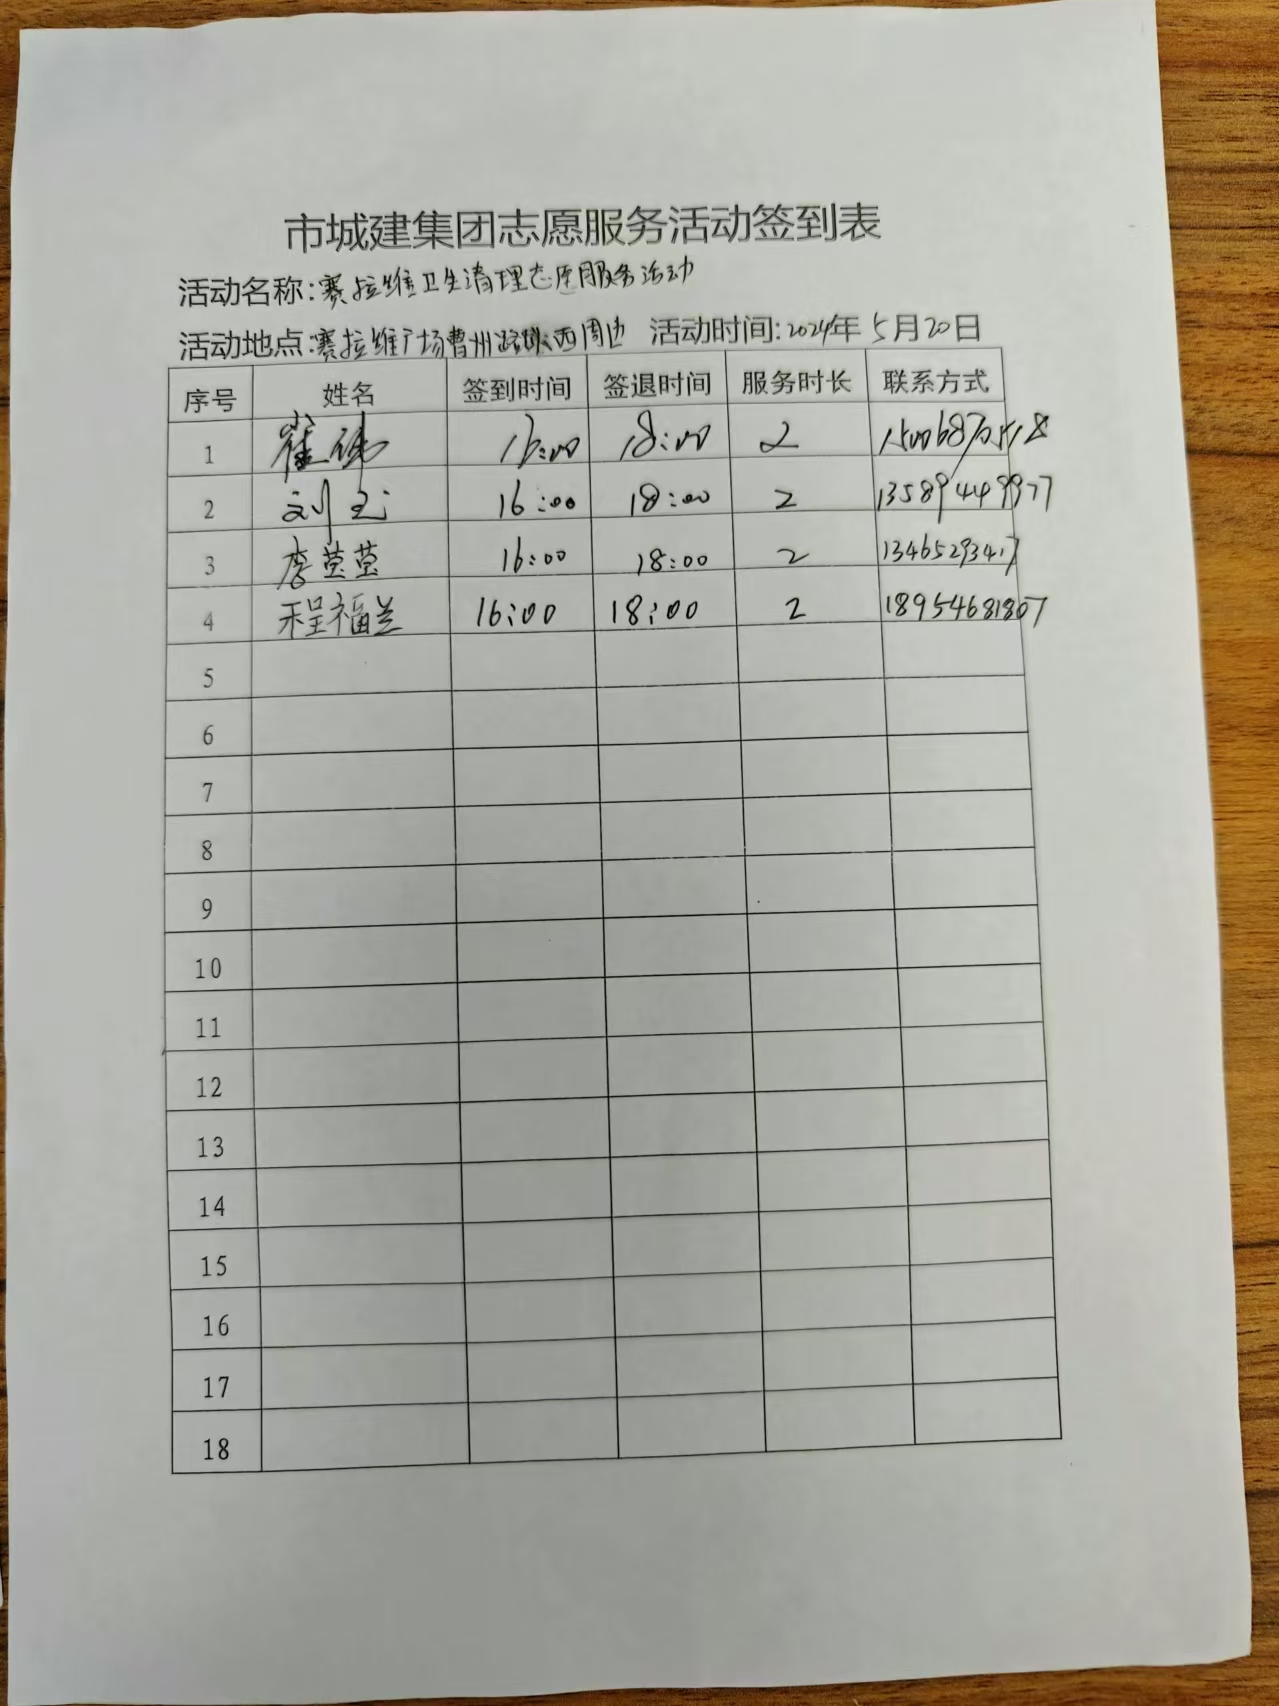 市城建集团志愿服务活动签到表
活动名称:赛拉维卫生清理志愿服务活动
活动地点:赛拉维广场曹州路以西周边 活动时间:2024年5月20日
序号 姓名 签到时间 签退时间 服务时长 联系方式
1 崔伟 16:00 18:00 2
2 刘 16:00 18:00 2 13589449977
3 李莹莹 16:00 18:00 2
4 程福兰 16:00 18:00 2 18954681807
5
6
7
8
9
10
11
12
13
14
15
16
17
18